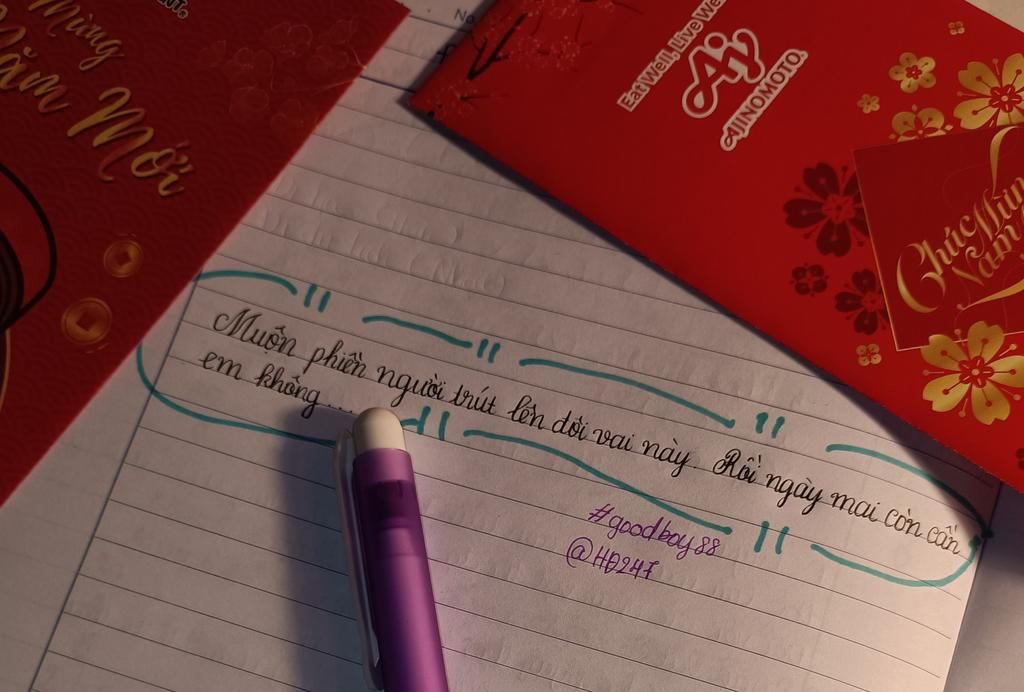 Mừng
Năm Mới
No.
Eat Well, Live We
Aj
AJINOMOTO
Chúc Mừn
Năm
Muộn phiền người trút lên đôi vai này. Rồi ngày mai còn cần
em không ...
#goodboy88
@HĐ247